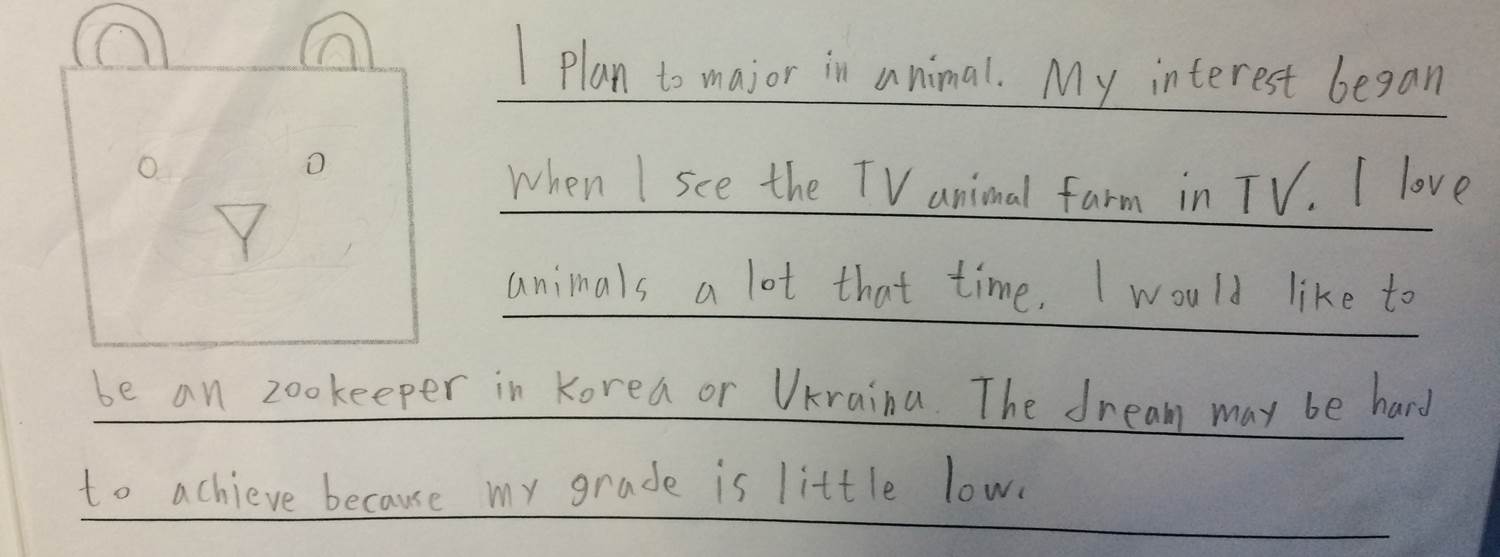 I plan to major in animal. My interest began
when I see the TV animal farm in TV. I love
animals a lot that time. I would like to
be an zookeeper in Korea or Ukraina. The dream may be hard
to achieve because my grade is little low.